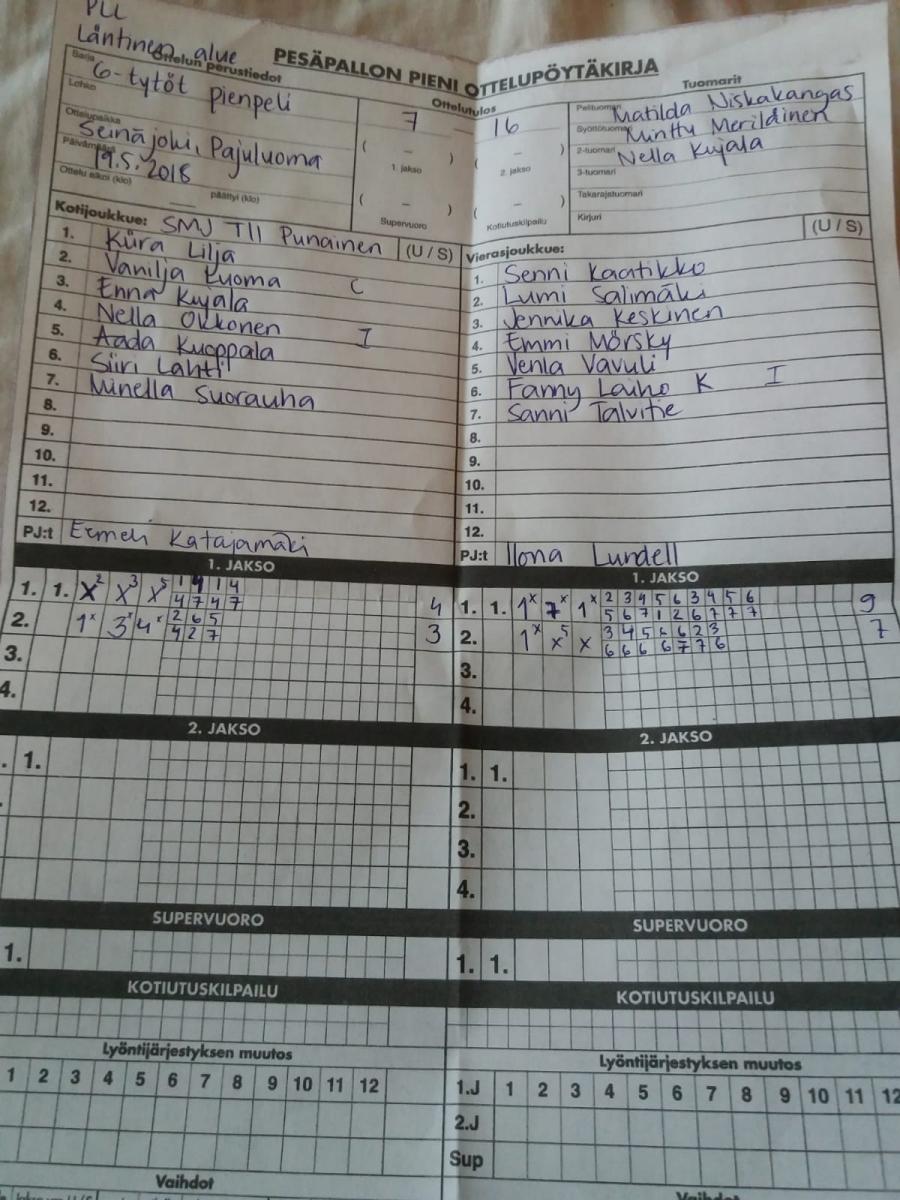 PLL
Läntinen alue
PESÄPALLON PIENI OTTELUPÖYTÄKIRJA
Ottelun perustiedot
Sarja G-tytöt pienpeli
Lohko
Ottelupaikka Seinäjoki, Pajuluoma
Päivämäärä 19.5.2018
Ottelu alkoi (klo) päättyi (klo)
Ottelutulos
7 – 16
( – ) ( – )
1. jakso 2. jakso
( – ) ( – )
Supervuoro Kotiutuskilpailu
Tuomarit
Pelituomari Matilda Niskakangas
Syöttötuomari Minttu Meriläinen
2-tuomari Nella Kujala
3-tuomari
Takarajatuomari
Kirjuri
Kotijoukkue: SMJ TII Punainen (U / S)
1. Kiira Lilja
2. Vanilja Luoma C
3. Enna Kujala
4. Nella Okkonen I
5. Aada Kuoppala
6. Siiri Lahti
7. Minella Suorauha
8.
9.
10.
11.
12.
PJ:t Ermeli Katajamäki
Vierasjoukkue: (U / S)
1. Senni Kaatikko
2. Lumi Salimäki
3. Jennika Keskinen
4. Emmi Mörsky
5. Venla Vavuli
6. Fanny Laiho K I
7. Sanni Talvitie
8.
9.
10.
11.
12.
PJ:t Ilona Lundell
1. JAKSO
1. 1. X2 X3 X5 1 4 1 4 4
4 7 4 7
2. 1x 3x 4x 2 6 5 3
4 2 7
3.
4.
1. JAKSO
1. 1. 1x 7x 1x 2 3 4 5 6 3 4 5 6 9
5 6 7 1 2 6 7 7 7
2. 1x x5 x 3 4 5 6 6 2 3 7
6 6 6 6 7 7 6
3.
4.
2. JAKSO
. 1.
2. JAKSO
1. 1.
2.
3.
4.
SUPERVUORO
1.
SUPERVUORO
1. 1.
KOTIUTUSKILPAILU
KOTIUTUSKILPAILU
Lyöntijärjestyksen muutos
1 2 3 4 5 6 7 8 9 10 11 12
Lyöntijärjestyksen muutos
1.J 1 2 3 4 5 6 7 8 9 10 11 12
2.J
Sup
Vaihdot
Vaihdot